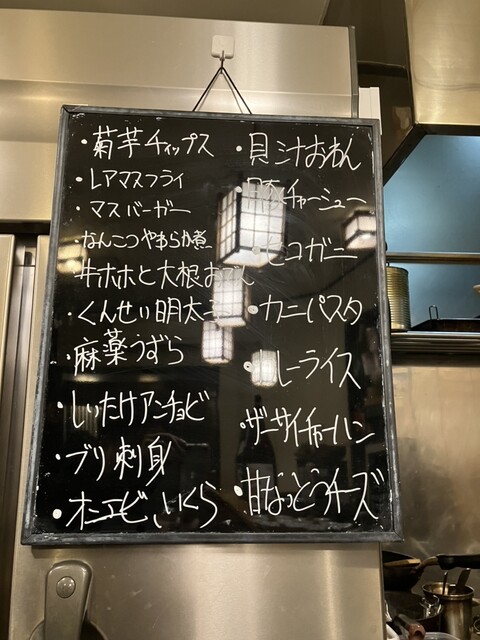 ・菊芋チィップス
・レアマスフライ
・マスバーガー
・なんこつやわらか煮
牛ホホと大根おでん
・くんせい明太子
・麻薬うずら
・しいたけアンチョビ
・ブリ刺身
・オニエビいくら
・貝汁おわん
・豚チャーシュー
セコガニ
・カニパスタ
レーライス
・ザーサイチャーハン
・甘なっとうチーズ